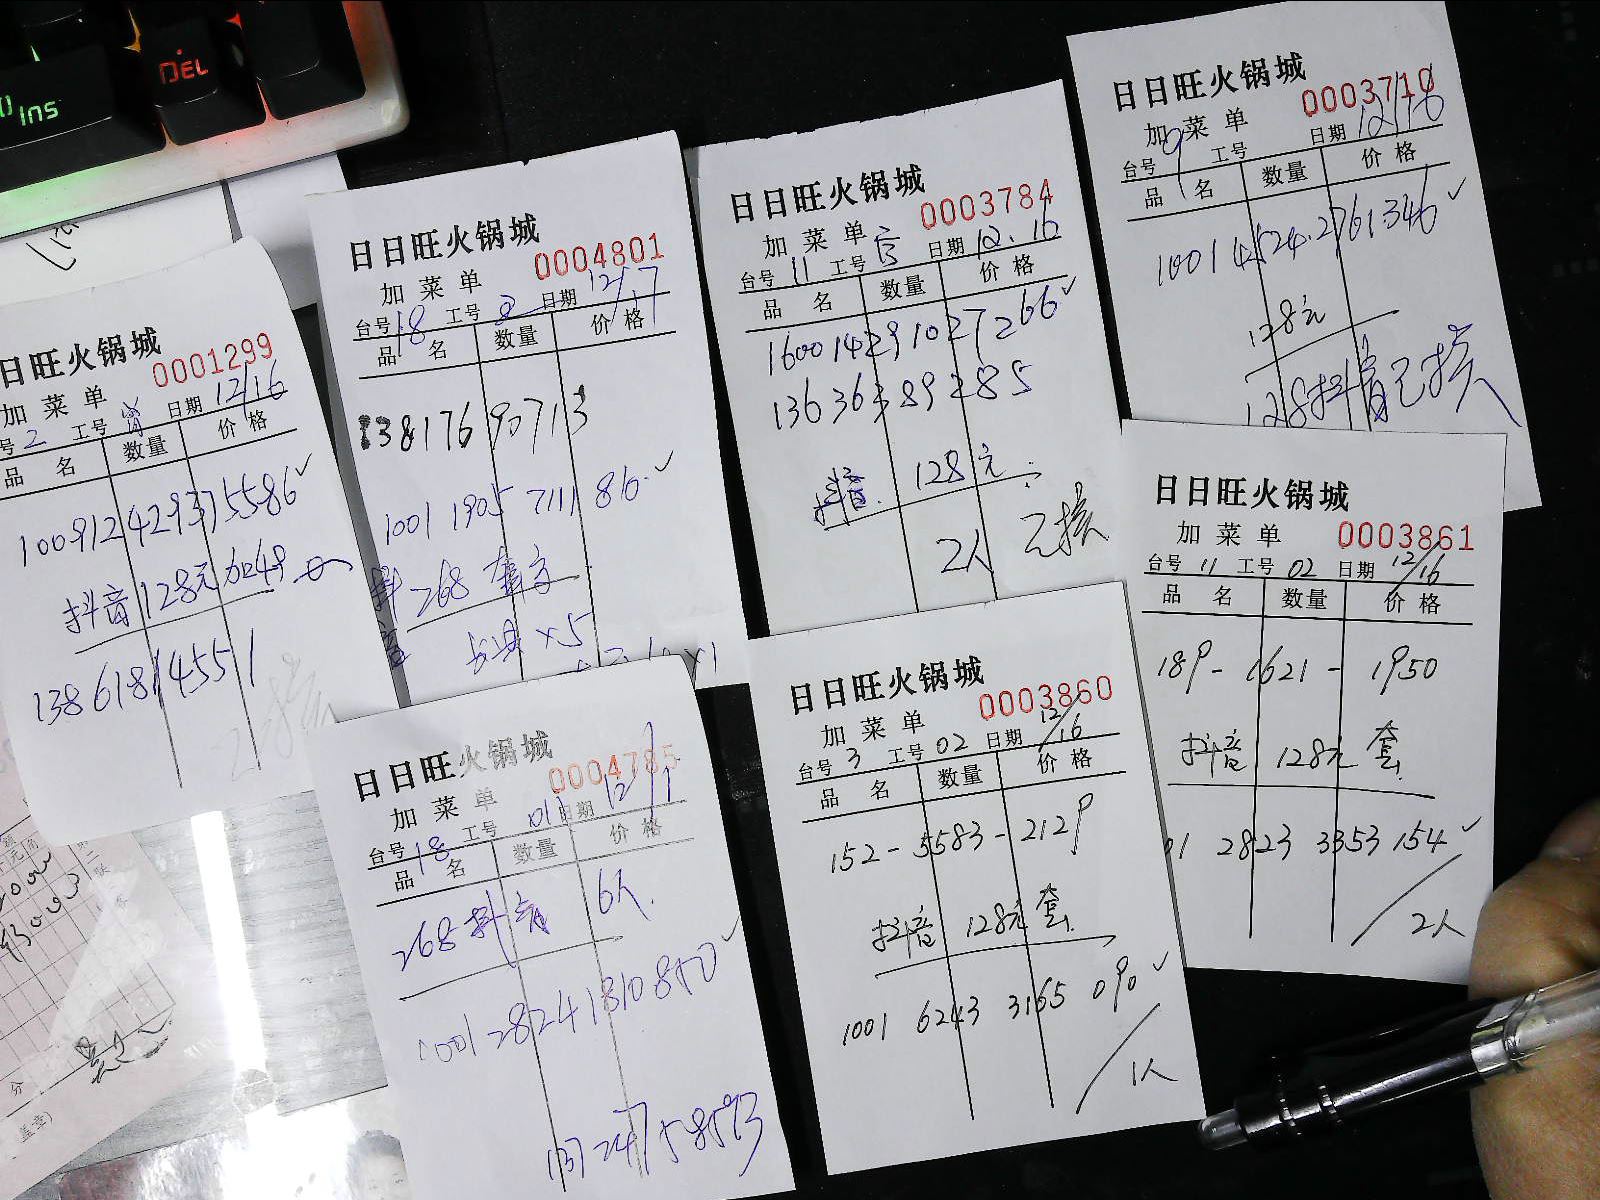 DEL
Ins
日日旺火锅城
0001299
加菜单
号 2 工号 日期 12/16
品名 数量 价格
100912429375586
抖音128元
13861814551
日日旺火锅城
0004801
加菜单
台号 18 工号 日期 12/17
品名 数量 价格
13817690713
1001 1905 7111 86
抖音 268 套
×5
日日旺火锅城
0003784
加菜单
台号 11 工号 日期 12.16
品名 数量 价格
160014291027266
13636389285
抖音 128元
2人 已核
日日旺火锅城
0003710
加菜单
台号 9 工号 日期 12/16
品名 数量 价格
100145242761346
128元
128抖音已核
日日旺火锅城
0004785
加菜单
台号 18 工号 01 日期 12/
品名 数量 价格
268抖音 6人
100128241810850
13724758593
日日旺火锅城
0003860
加菜单
台号 3 工号 02 日期 12/16
品名 数量 价格
152-5583-2129
抖音 128元 套
1001 6243 3165 090
1人
日日旺火锅城
0003861
加菜单
台号 11 工号 02 日期 12/16
品名 数量 价格
189-1621-1950
抖音 128元 套
01 2823 3353 154
2人
盖章)